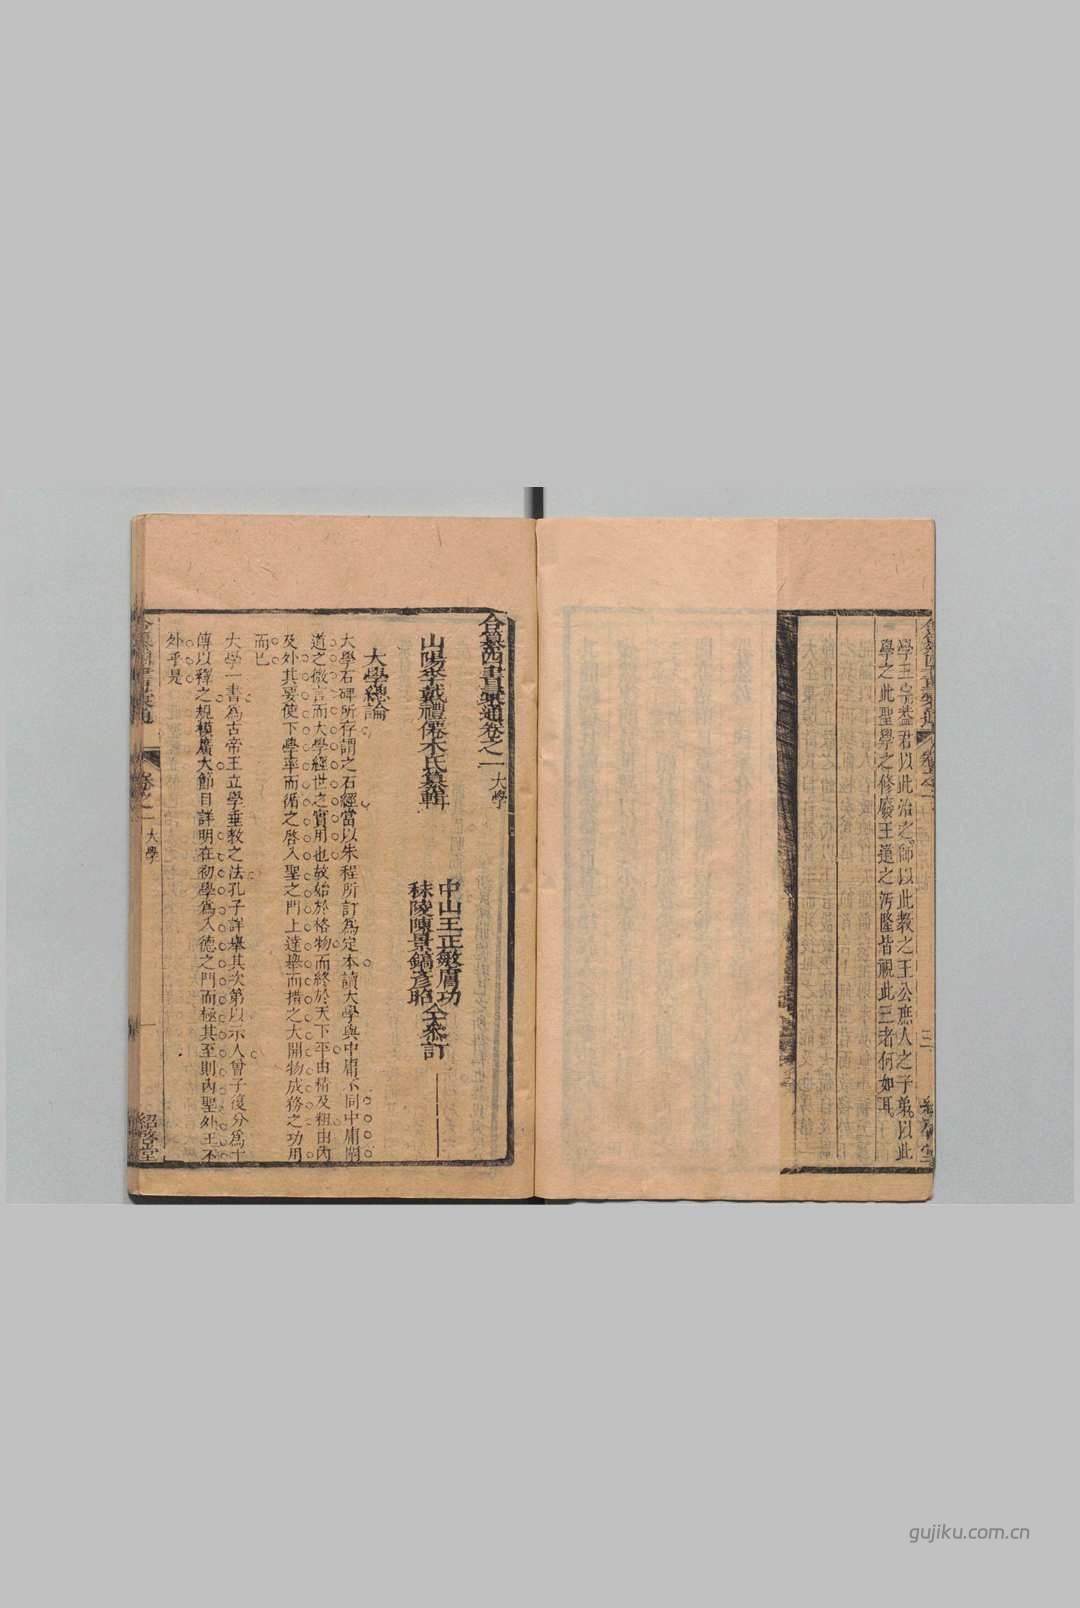 學王宗葢君以此治之師以此教之王公庶人之子弟以此
學之此聖學之修廢王道之汚隆皆視此三者何如耳
三
合纂四書衆通卷之一 大學
山陽李戴禮僊木氏纂輯
中山王正敏膚功
秣陵陳景鎬彥昭
仝叅訂
大學總論
大學石碑所存謂之石經當以朱程所訂為定本讀大學與中庸不同中庸明
道之微言而大學經世之實用也故始於格物而終於天下平由精及粗由內
及外其要使下學率而循之啓入聖之門上達舉而措之大開物成務之功用
而已
大學一書為古帝王立學垂教之法孔子詳舉其次第以示人曾子復分為十
傳以釋之規模廣大節目詳明在初學爲入德之門而極其至則內聖外王不
外乎是
卷之一
大學
一
紹啓堂
gujiku.com.cn